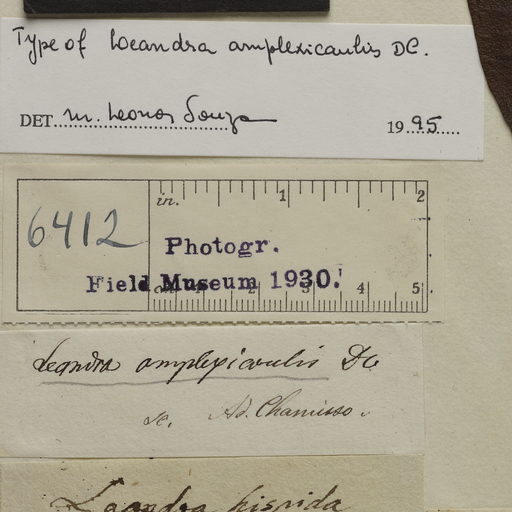 Type of Leandra amplexicaulis DC.
DET. M. Leonor Souza 1995
in. 1 2
6412
Photogr.
Field Museum 1930.
4 5
Leandra amplexicaulis DC
Ad. Chamisso.
Leandra hispida